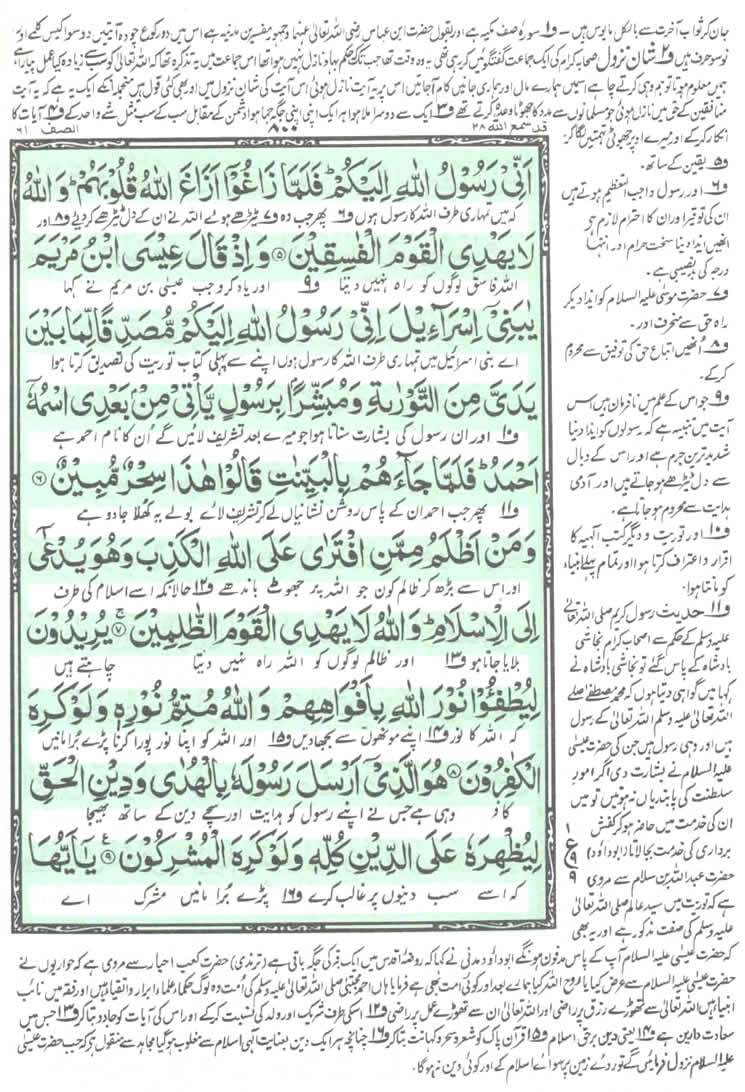 جان کر ثواب آخرت سے بالکل مایوس ہیں۔ و۱ سورۂ صف مکیہ ہے اور بقول حضرت ابن عباس رضی اللہ تعالیٰ عنہما و جمہور مفسرین مدنیہ ہے اس میں دو رکوع چودہ آیتیں دو سو اکیس کلمے اور
نو سو حرف ہیں و۲ شان نزول صحابہ کرام کی ایک جماعت گفتگوئیں کر رہی تھی یہ وہ وقت تھا جب تک حکم جہاد نازل نہیں ہوا تھا اس جماعت میں یہ تذکرہ تھا کہ اللہ تعالیٰ کو سب سے زیادہ کیا عمل پیارا ہے
ہمیں معلوم ہوتا تو ہم وہی کرتے چاہے اس میں ہمارے مال اور ہماری جانیں کام آجاتیں اس پر یہ آیت نازل ہوئی اس آیت کی شان نزول میں اور بھی کئی قول ہیں منجملہ انکے ایک یہ ہے کہ یہ آیت
منافقین کے حق میں نازل ہوئی جو مسلمانوں سے مدد کا جھوٹا وعدہ کرتے تھے و۳ ایک سے دوسرا ملا ہوا ہر ایک اپنی اپنی جگہ جما ہوا دشمن کے مقابل سب کے سب مثل شے واحد کے و۴ آیات کا
قد سمع اللہ ۲۸
۸۰۰
الصف ۶۱
اَنِّیْ رَسُوْلُ اللّٰهِ اِلَیْكُمْ ؕ فَلَمَّا زَاغُوْۤا اَزَاغَ اللّٰهُ قُلُوْبَهُمْ ؕ وَ اللّٰهُ
کہ میں تمہاری طرف اللہ کا رسول ہوں و۶ پھر جب وہ و۷ ٹیڑھے ہوئے اللہ نے ان کے دل ٹیڑھے کر دیئے و۸ اور
لَا یَهْدِی الْقَوْمَ الْفٰسِقِیْنَ ۝۵ وَ اِذْ قَالَ عِیْسَى ابْنُ مَرْیَمَ
اللہ فاسق لوگوں کو راہ نہیں دیتا و۹ اور یاد کرو جب عیسیٰ بن مریم نے کہا
یٰبَنِیْۤ اِسْرَآءِیْلَ اِنِّیْ رَسُوْلُ اللّٰهِ اِلَیْكُمْ مُّصَدِّقًا لِّمَا بَیْنَ
اے بنی اسرائیل میں تمہاری طرف اللہ کا رسول ہوں اپنے سے پہلی کتاب توریت کی تصدیق کرتا ہوا
یَدَیَّ مِنَ التَّوْرٰىةِ وَ مُبَشِّرًۢا بِرَسُوْلٍ یَّاْتِیْ مِنْۢ بَعْدِی اسْمُهٗۤ
و۱۰ اور ان رسول کی بشارت سناتا ہوا جو میرے بعد تشریف لائیں گے اُن کا نام احمد ہے
اَحْمَدُ ؕ فَلَمَّا جَآءَهُمْ بِالْبَیِّنٰتِ قَالُوْا هٰذَا سِحْرٌ مُّبِیْنٌ ۝۶
و۱۱ پھر جب احمد ان کے پاس روشن نشانیاں لے کر تشریف لائے بولے یہ کھلا جادو ہے
وَ مَنْ اَظْلَمُ مِمَّنِ افْتَرٰى عَلَى اللّٰهِ الْكَذِبَ وَ هُوَ یُدْعٰۤى
اور اس سے بڑھ کر ظالم کون جو اللہ پر جھوٹ باندھے و۱۲ حالانکہ اسے اسلام کی طرف
اِلَى الْاِسْلَامِ ؕ وَ اللّٰهُ لَا یَهْدِی الْقَوْمَ الظّٰلِمِیْنَ ۝۷ یُرِیْدُوْنَ
بلایا جاتا ہو و۱۳ اور ظالم لوگوں کو اللہ راہ نہیں دیتا چاہتے ہیں
لِیُطْفِـُٔوْا نُوْرَ اللّٰهِ بِاَفْوَاهِهِمْ وَ اللّٰهُ مُتِمُّ نُوْرِهٖ وَ لَوْ كَرِهَ
کہ اللہ کا نور و۱۴ اپنے مونھوں سے بجھا دیں و۱۵ اور اللہ کو اپنا نور پورا کرنا پڑے بُرا مانیں
الْكٰفِرُوْنَ ۝۸ هُوَ الَّذِیْۤ اَرْسَلَ رَسُوْلَهٗ بِالْهُدٰى وَ دِیْنِ الْحَقِّ
کافر وہی ہے جس نے اپنے رسول کو ہدایت اور سچے دین کے ساتھ بھیجا
لِیُظْهِرَهٗ عَلَى الدِّیْنِ كُلِّهٖ وَ لَوْ كَرِهَ الْمُشْرِكُوْنَ ۝۹ یٰۤاَیُّهَا
کہ اسے سب دینوں پر غالب کرے و۱۶ پڑے بُرا مانیں مشرک اے
انکار کر کے اور میرے اوپر جھوٹی تہمتیں لگا کر
و۵ یقین کے ساتھ۔
و۶ اور رسول واجب التعظیم ہوتے ہیں
ان کی توقیر اور ان کا احترام لازم ہے
انھیں ایذا دینا سخت حرام اور انتہا
درجہ کی بدنصیبی ہے۔
و۷ حضرت موسیٰ علیہ السلام کو ایذا دیکر
راہ حق سے منحرف اور۔
و۸ اُنھیں اتباع حق کی توفیق سے محروم
کرکے۔
و۹ جو اس کے علم میں نافرمان ہیں اس
آیت میں تنبیہ ہے کہ رسولوں کو ایذا دینا
شدید ترین جرم ہے اور اس کے وبال
سے دل ٹیڑھے ہو جاتے ہیں اور آدمی
ہدایت سے محروم ہو جاتا ہے۔
و۱۰ اور توریت و دیگر کتب الٰہیہ کا
اقرار و اعتراف کرتا ہوا اور تمام پہلے انبیاء
کو مانتا ہوا۔
و۱۱ حدیث رسول کریم صلی اللہ تعالیٰ
علیہ وسلم کے حکم سے اصحاب کرام نجاشی
بادشاہ کے پاس گئے تو نجاشی بادشاہ نے
کہا میں گواہی دیتا ہوں کہ محمد مصطفےٰ صلی
اللہ تعالیٰ علیہ وسلم اللہ تعالیٰ کے رسول
ہیں اور وہی رسول ہیں جن کی حضرت عیسیٰ
علیہ السلام نے بشارت دی اگر امور
سلطنت کی پابندیاں نہ ہوتیں تو میں
ان کی خدمت میں حاضر ہو کر کفش
برداری کی خدمت بجا لاتا (ابو داؤد)
حضرت عبد اللہ بن سلام سے مروی ہے
کہ توریت میں سید عالم صلی اللہ تعالیٰ
علیہ وسلم کی صفت مذکور ہے اور یہ بھی
۱
ع
۹
۹
کہ حضرت عیسیٰ علیہ السلام آپ کے پاس مدفون ہونگے ابو داؤد مدنی نے کہا کہ روضۂ اقدس میں ایک قبر کی جگہ باقی ہے (ترمذی) حضرت کعب احبار سے مروی ہے کہ حواریوں نے
حضرت عیسیٰ علیہ السلام سے عرض کیا یا روح اللہ کیا ہمارے بعد اور کوئی امت بھی ہے فرمایا ہاں احمد مجتبیٰ صلی اللہ تعالیٰ علیہ وسلم کی اُمت وہ لوگ حکما، علما، ابرار و اتقیا ہیں اور فقہ میں نائب
انبیا ہیں اللہ تعالیٰ سے تھوڑے رزق پر راضی اور اللہ تعالیٰ ان سے تھوڑے عمل پر راضی و۱۲ اسکی طرف شریک اور ولد کی نسبت کرکے اور اس کی آیات کو جادو بتا کر و۱۳ جس میں
سعادت دارین ہے و۱۴ یعنی دین برحق اسلام و۱۵ قرآن پاک کو شعر و سحر و کہانت بتا کر و۱۶ چنانچہ ہر ایک دین بعنایت الٰہی اسلام سے مغلوب ہو گیا مجاہد سے منقول ہے کہ جب حضرت عیسیٰ
علیہ السلام نزول فرمائیں گے تو روئے زمین پر سوائے اسلام کے اور کوئی دین نہ ہو گا۔